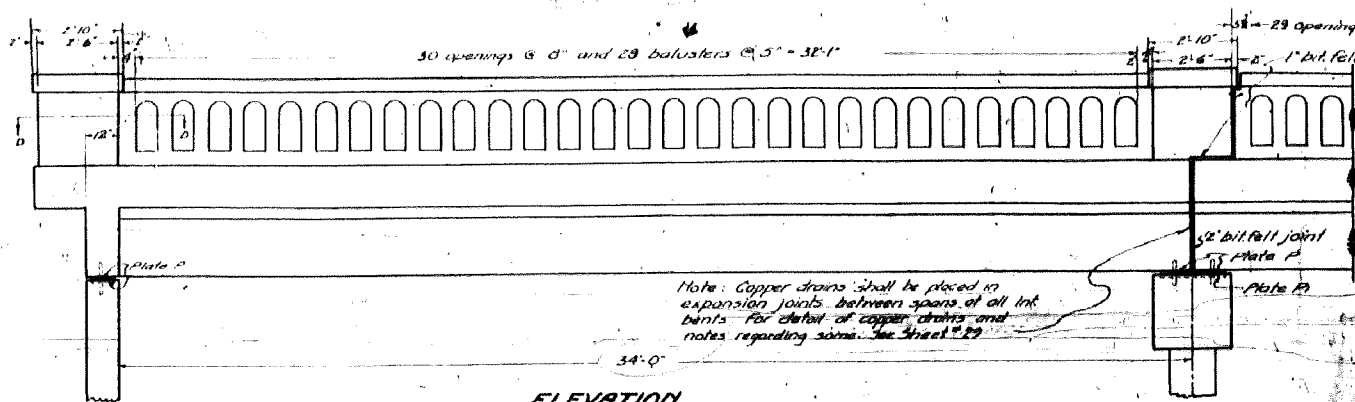 2'-10"
2"
2'-6"
30 openings @ 8" and 29 balusters @ 5" = 32'-1"
2'-10"
2'-6"
2"
29 opening
1" bit. felt
12"
D
D
Plate P
½" bit. felt joint
Plate P
Plate P1
Note: Copper drains shall be placed in
expansion joints between spans at all Int.
bents. For detail of copper drains and
notes regarding same. See Sheet #29
34'-0"
ELEVATION